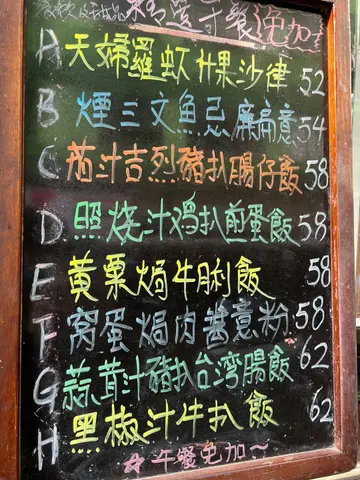 選午餐免加
A 天婦羅虾什果沙律 52
B 煙三文魚忌廉扁意 54
C 茄汁吉烈豬扒腸仔飯 58
D. 照烧汁鸡扒煎蛋飯 58
E 黃粟焗牛脷飯 58
F 窝蛋焗肉醬意粉 58
G 蒜茸汁豬扒台湾腸飯 62
H 黑椒汁牛扒飯 62
☆ 午餐免加~